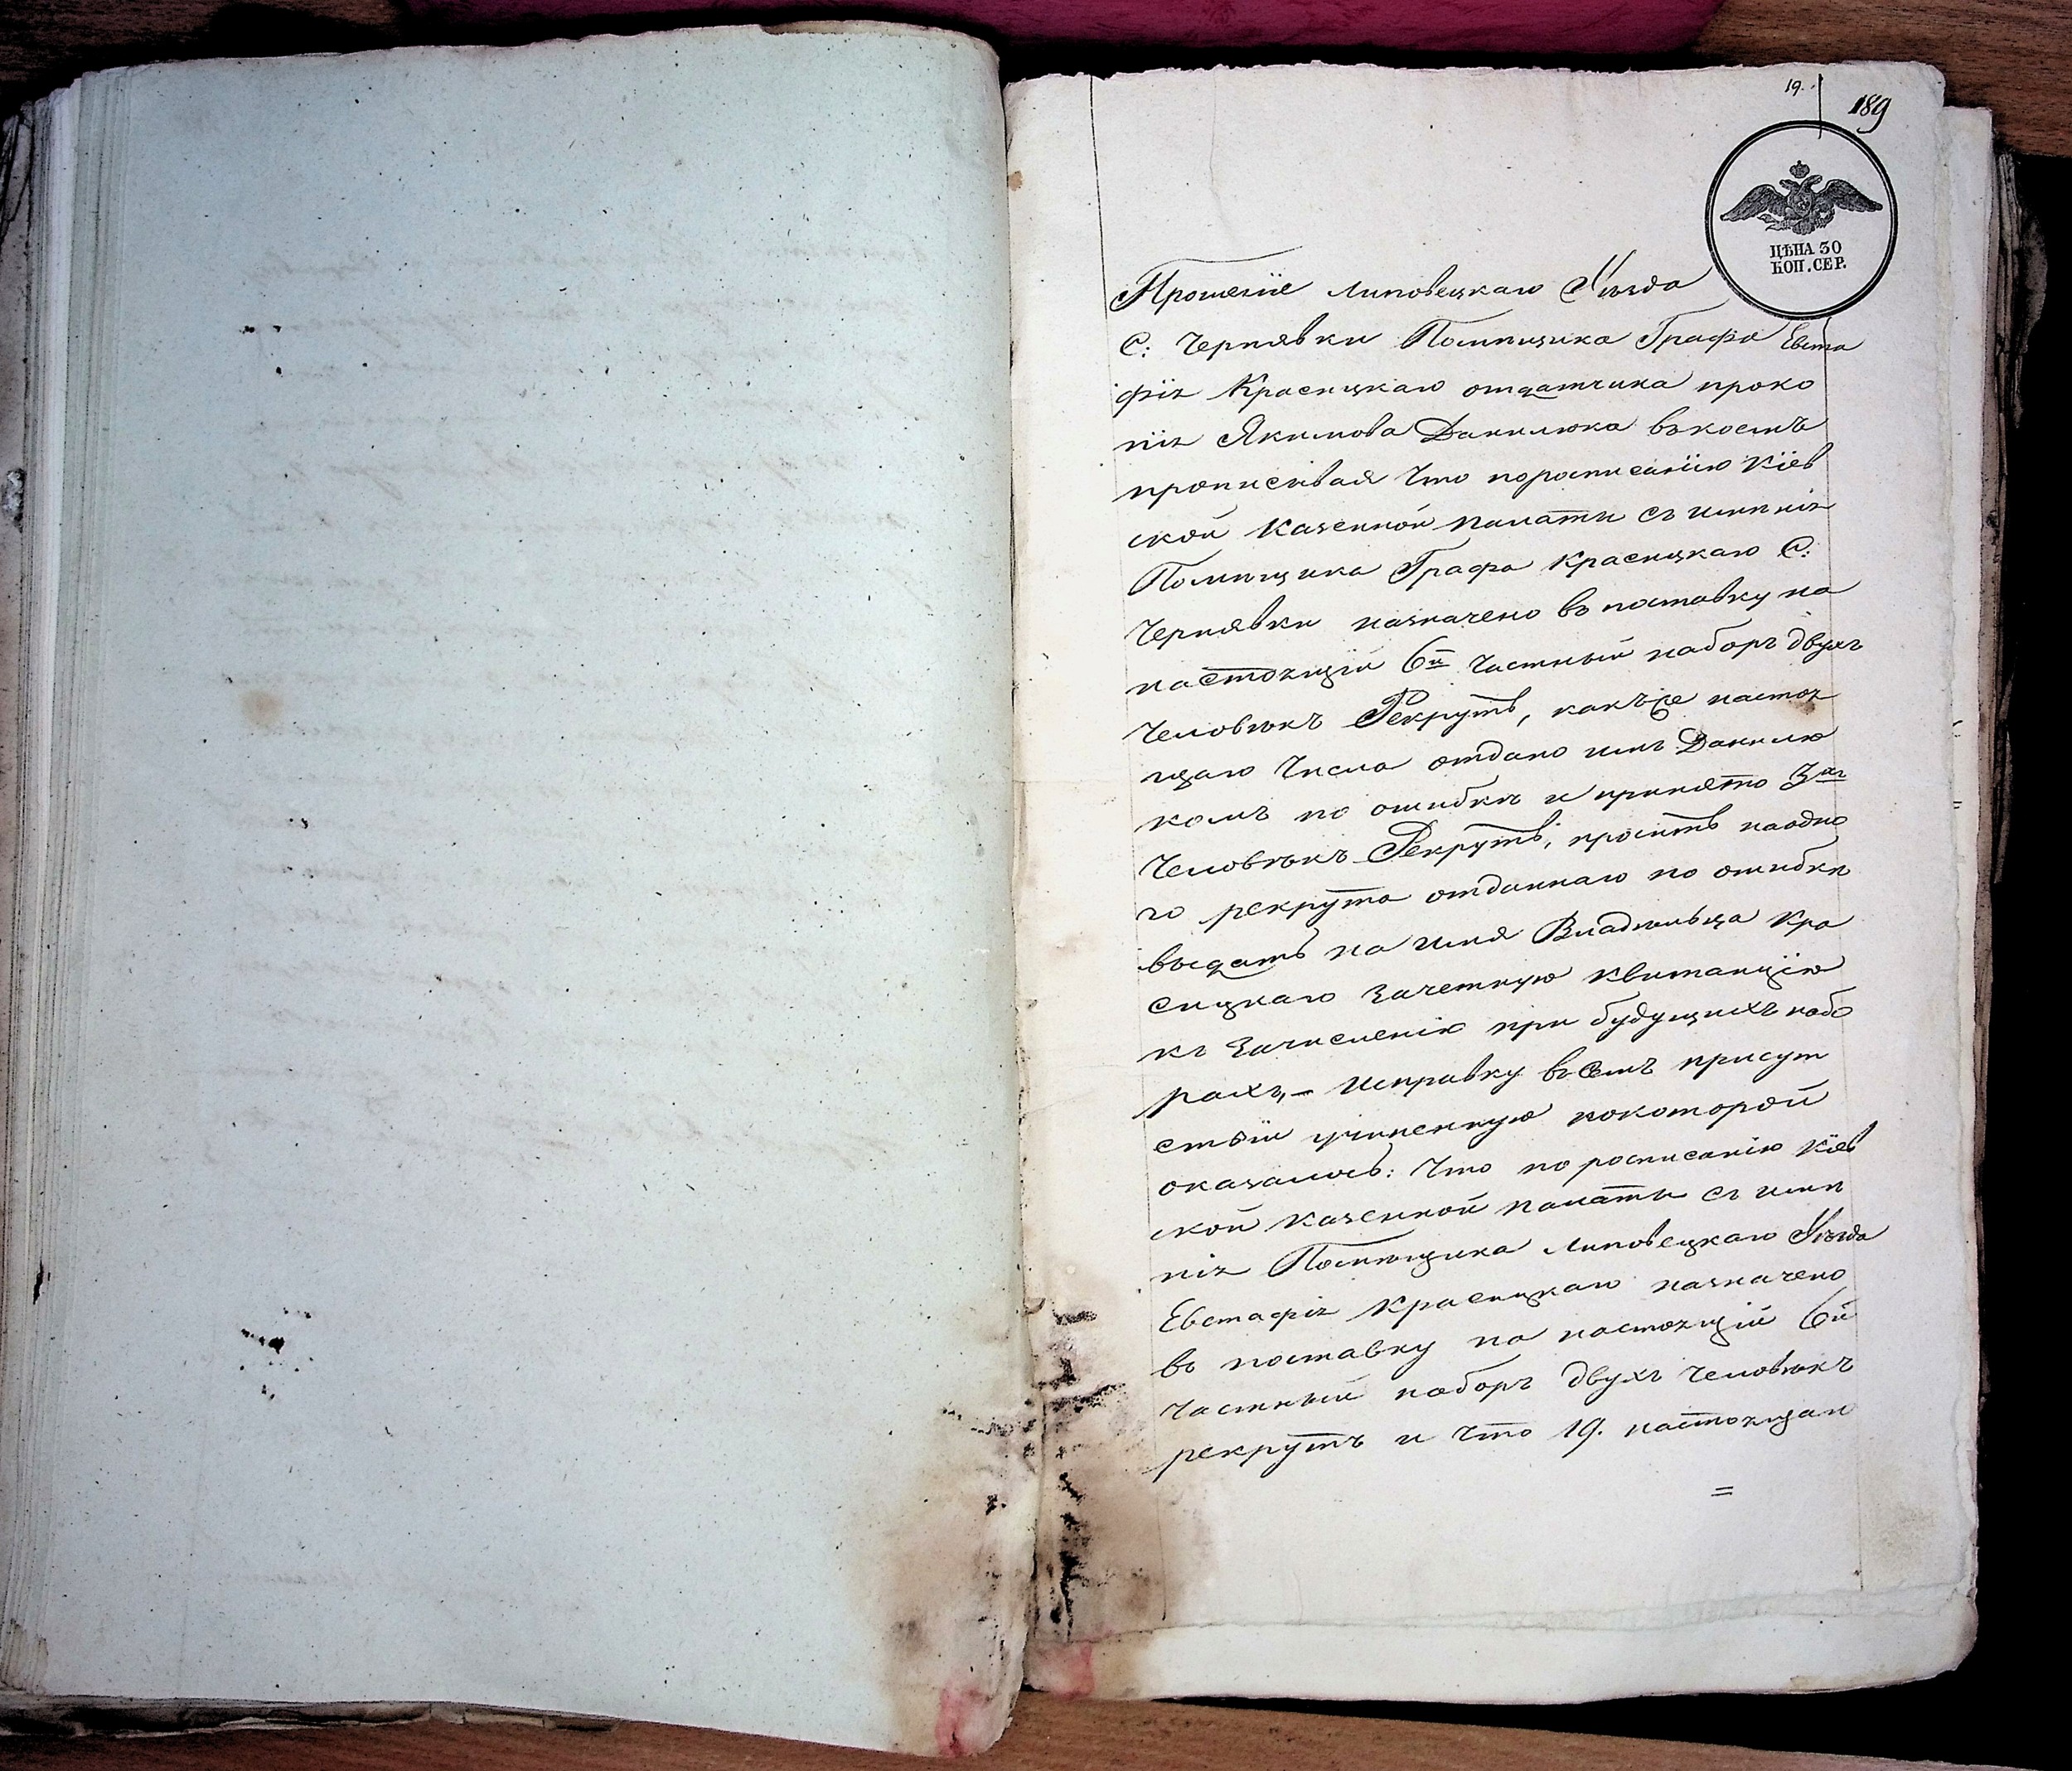 19.
189
ЦѢНА 30
КОП. СЕР.
Прошеніе Липовецкаго Уѣзда
С: Чернявки Помѣщика Графа Евста
фія Красицкаго отдатчика проко
пія Якимова Данилюка въкоемъ
прописывая что порописанію Кіев
ской Казенной палаты съ имѣнія
Помѣщика Графа Красицкаго С:
Чернявки назначено въ поставку на
настоящій 6й Частный наборъ двухъ
Человѣкъ Рекрутъ, какъже настоя
щаго Числа отдано имъ Данилю
комъ по ошибкѣ и принято 3хъ
Человѣкъ Рекрутъ, проситъ наодно
го рекрута отданнаго по ошибкѣ
выдать на имя Владѣльца Кра
сицкаго Зачетную Квитанцію
къ Зачисленію при будущихъ набо
рахъ, – Исправку въСемъ присут
ствіи учиненную покоторой
оказалось: Что по росписанію Кіев
ской Казенной палаты съ имѣ
нія Помѣщика Липовецкаго Уѣзда
Евстафія Красицкаго назначено
въ поставку на настоящій 6й
Частный наборъ двухъ Человѣкъ
рекрутъ и что 19. настоящаго
=